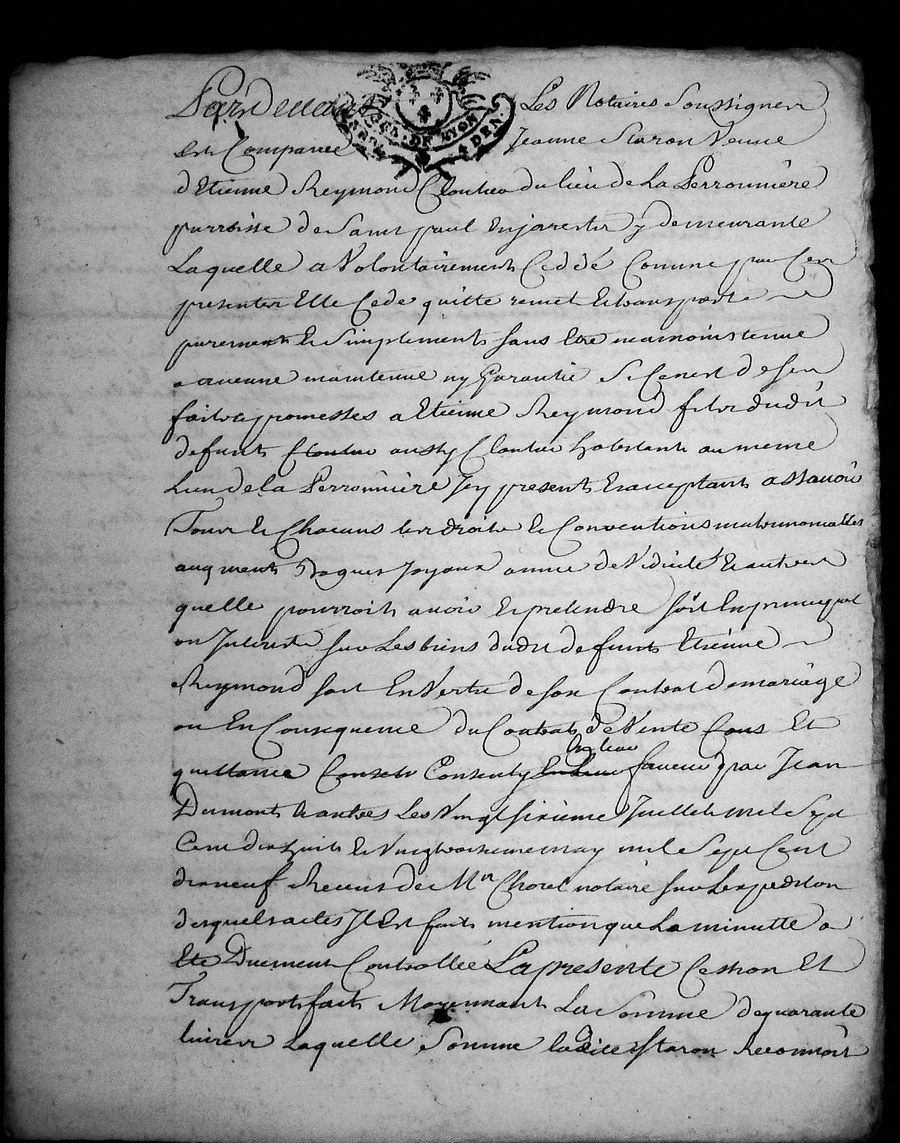 Pardevant Les Notaires Soussignes
GEN. DE LYON
Est Comparue Jeanne Staron Veuve
d'Etienne Reymond Cloutier du lieu de la Perronnière
parroisse de Saint paul Enjarests y demeurante
Laquelle a Volontairement Ceddé Comme par Ces
presentes Elle Cede quitte remet Et transporte
purement Et Simplement sans Etre neamoins tenue
a aucune maintenue ny Garantie Si Cenest de ses
faits et promesses a Etienne Reymond fils dudit
defunt Cloutier aussy Cloutier habitant au meme
Lieu de la Perronnière Icy present Et acceptant assavoir
Tous Et Chacuns les droits Et Conventions matrimoniales
augment Bagues Joyaux année de Viduité Et autres
quelle pourroit avoir Et pretendre soit En principal
ou Interest sur Les biens dudit defunt Etienne
Reymond soit En Vertu de son Contrat de mariage
ou En Consequence du Contrat de Vente Et
quittance Consenty faveur par Jean
Dumont Et autres Les Vingt sixième Juillet mil Sept
Cent dix huit Et may mil Sept Cent
dix neuf Receus de Mre Chorel notaire sur Lexpedition
desquels actes Il Est fait mention que La minutte a
Eté Duement Controllée La presente Cession Et
Transport fait Moyennant La Somme de quarante
livres Laquelle Somme ladite Staron Reconnoit